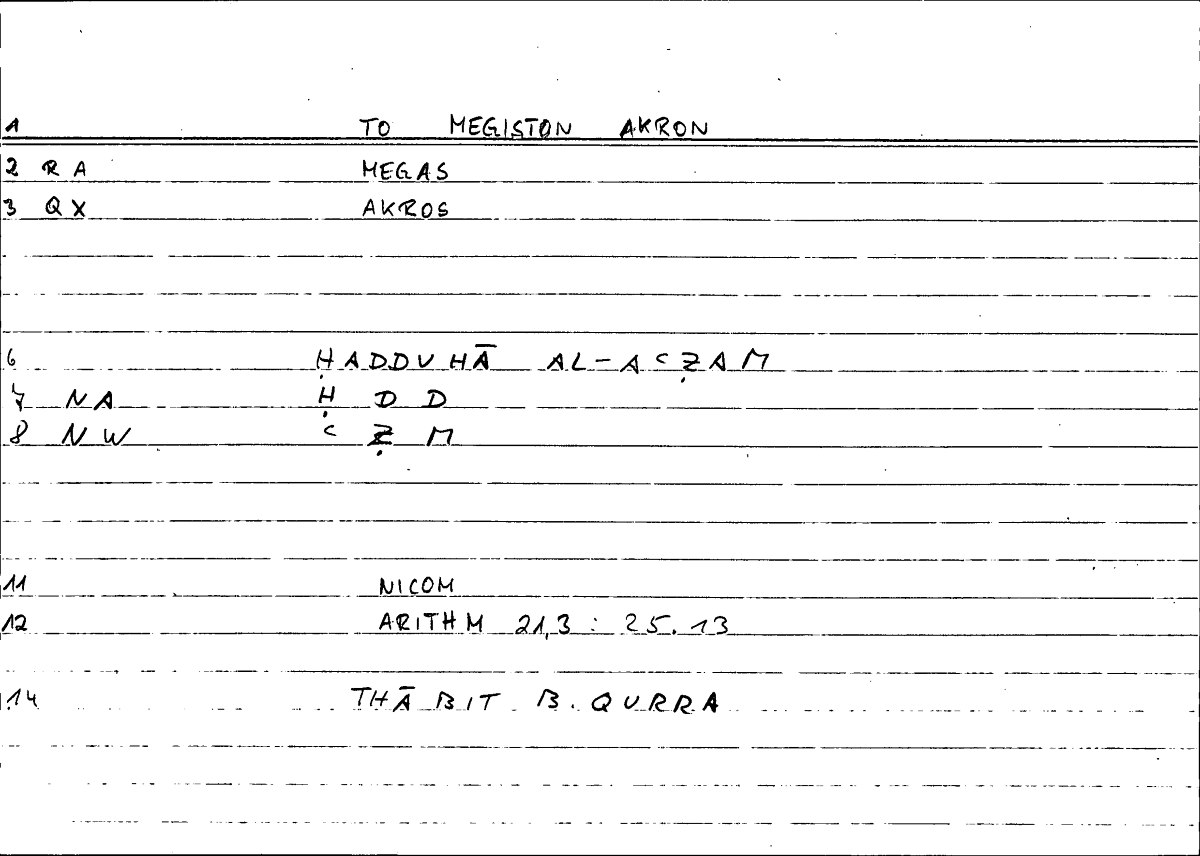 1 TO MEGISTON AKRON
2 RA MEGAS
3 QX AKROS
6 ḤADDUHĀ AL-AʿẒAM
7 NA Ḥ D D
8 NW ʿ Ẓ M
11 NICOM
12 ARITHM 21,3 : 25.13
14 THĀBIT B. QURRA